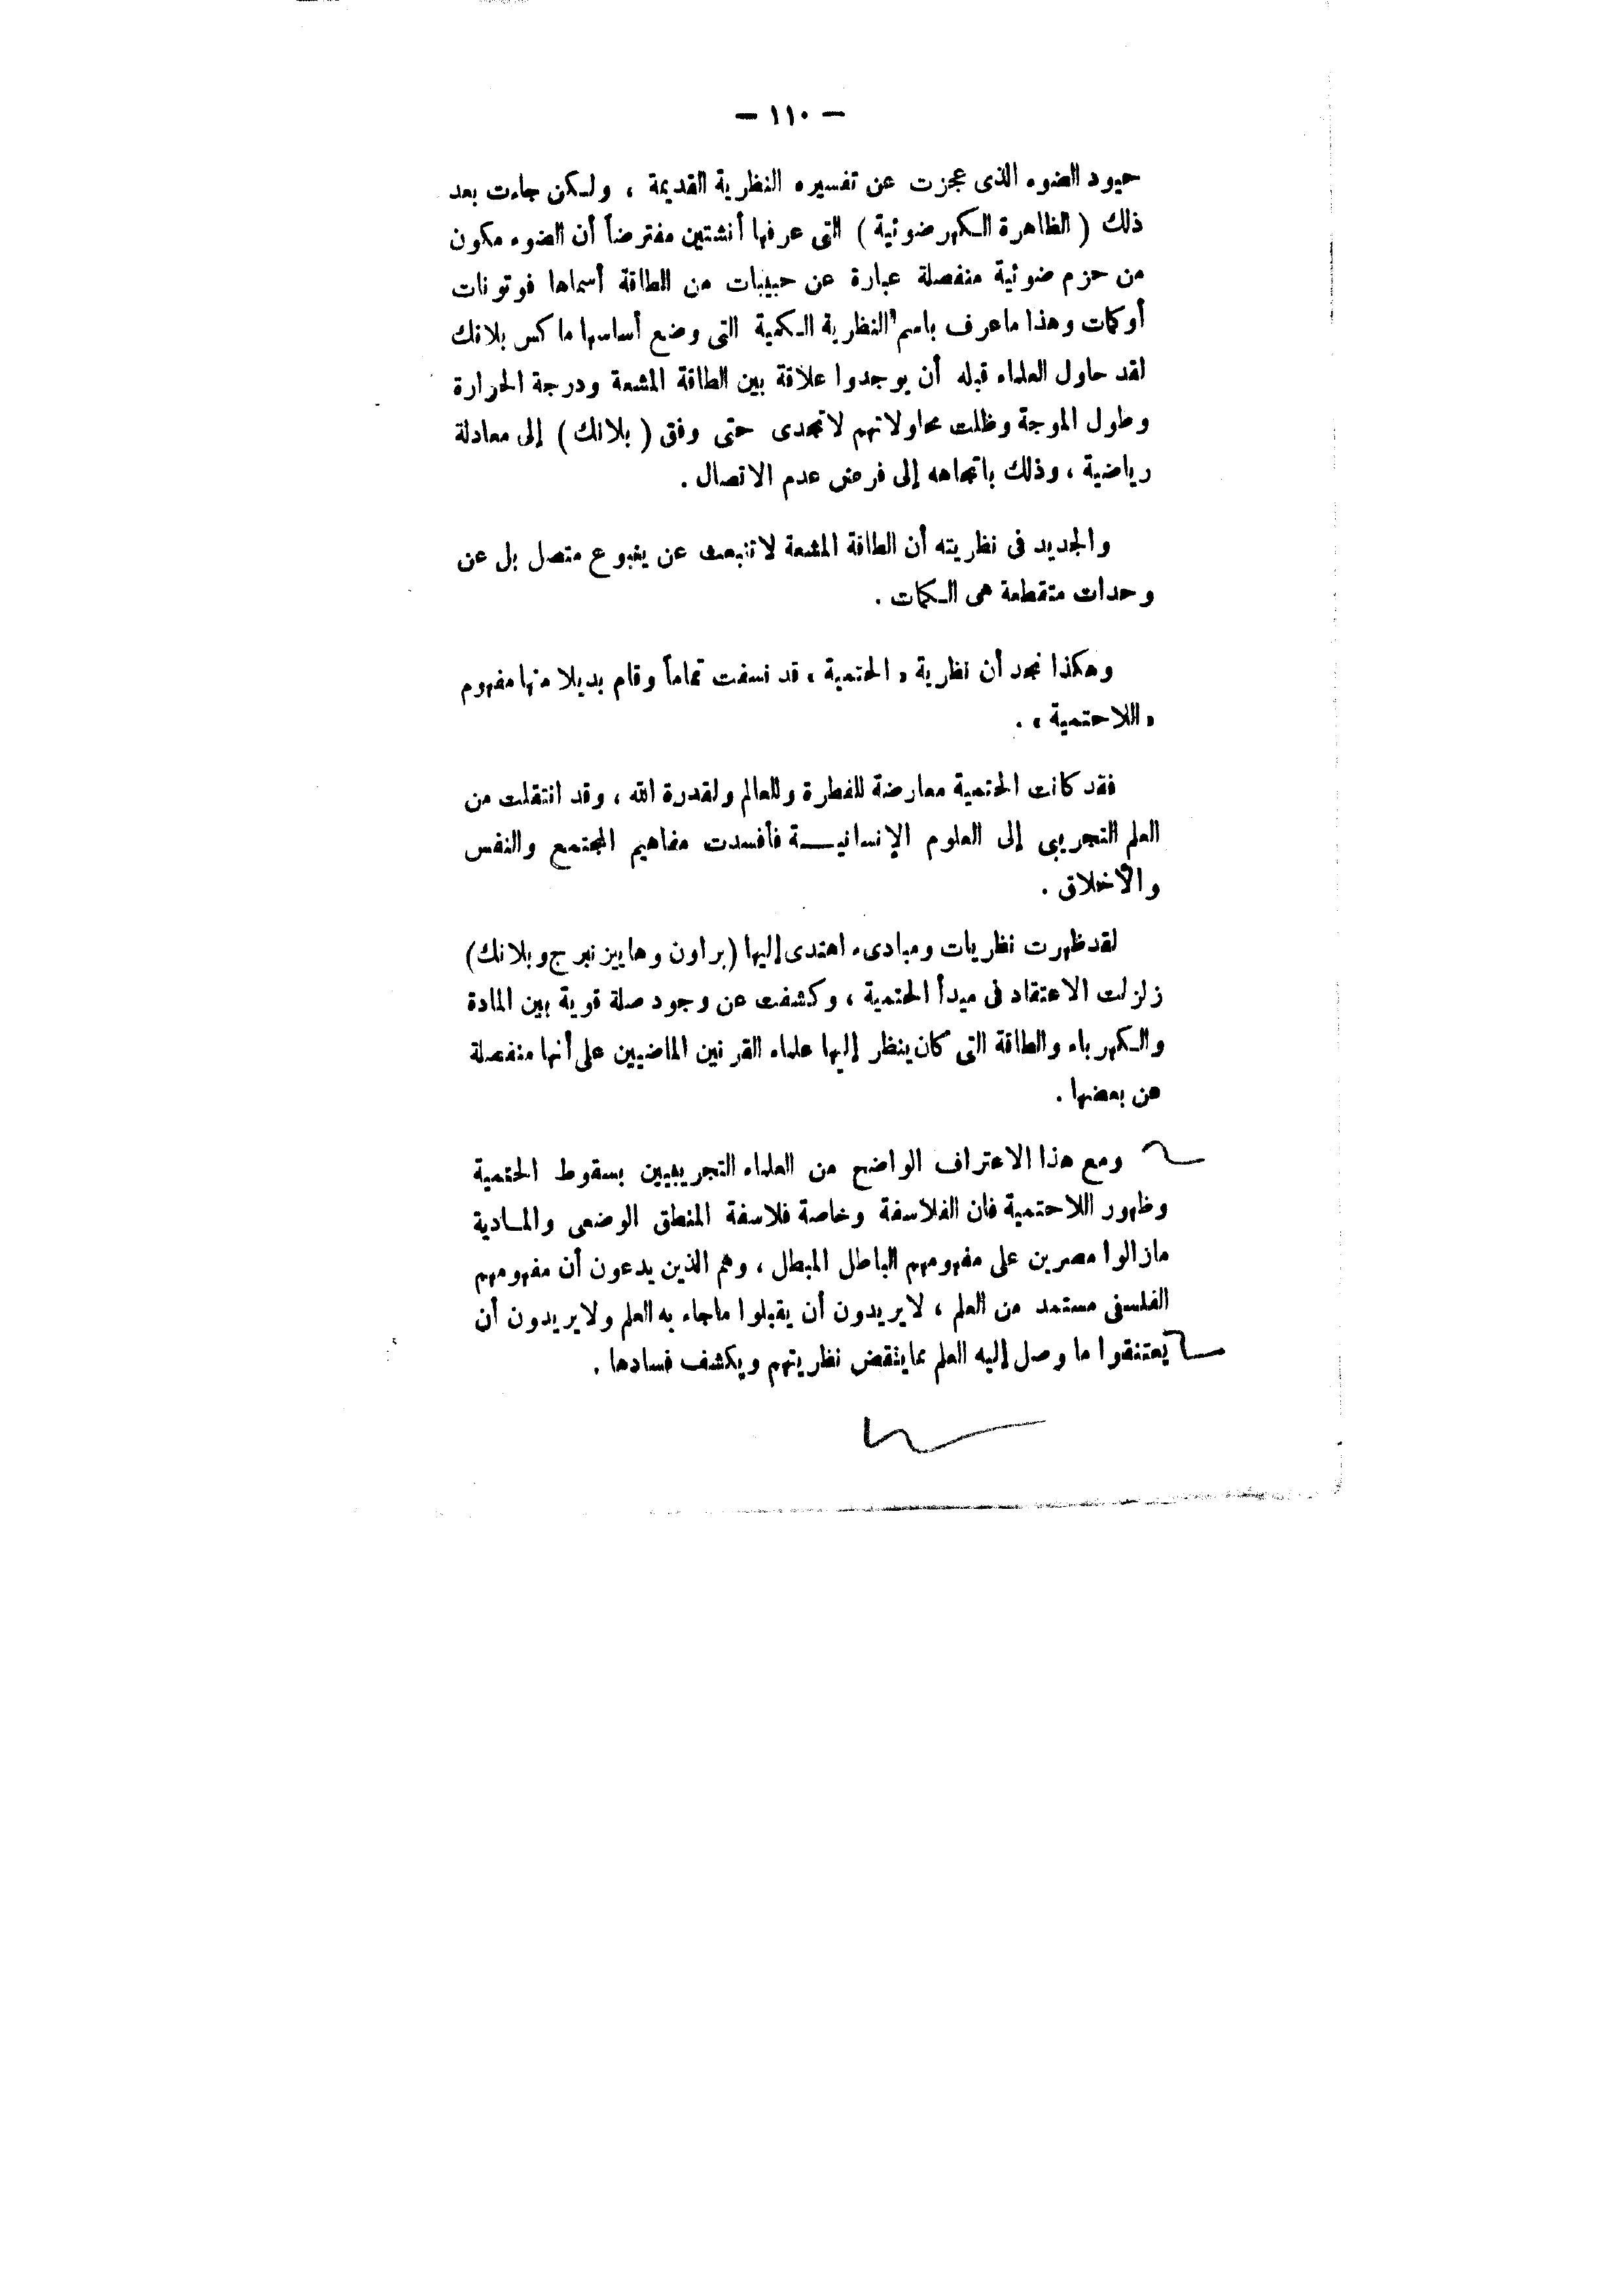 — ١١٠ —
حيود الضوء الذى عجزت عن تفسيره النظرية القديمة ، ولكن جاءت بعد
ذلك ( الظاهرة الكهرضوئية ) التى عرفها أنشتين مفترضاً أن الضوء مكون
من حزم ضوئية منفصلة عبارة عن حبيبات من الطاقة أسماها فوتونات
أوكمات وهذا ماعرف باسم النظرية الكمية التى وضع أساسها ماكس بلانك
لقد حاول العلماء قبله أن يوجدوا علاقة بين الطاقة المشعة ودرجة الحرارة
وطول الموجة وظلت محاولاتهم لاتجدى حتى وفق ( بلانك ) إلى معادلة
رياضية ، وذلك باتجاهه إلى فرض عدم الاتصال .
والجديد فى نظريته أن الطاقة المشعة لاتنبعث عن ينبوع متصل بل عن
وحدات متقطعة هى الكمات .
وهكذا نجد أن نظرية « الحتمية » قد نسفت تماماً وقام بديلا منها مفهوم
« اللاحتمية » .
فقد كانت الحتمية معارضة للفطرة وللعالم ولقدرة الله ، وقد انتقلت من
العلم التجريبى إلى العلوم الإنسانيــة فأفسدت مفاهيم المجتمع والنفس
والأخلاق .
لقد ظهرت نظريات ومبادىء اهتدى إليها (براون وهايزنبرج وبلانك)
زلزلت الاعتقاد فى مبدأ الحتمية ، وكشفت عن وجود صلة قوية بين المادة
والكهرباء والطاقة التى كان ينظر إليها علماء القرنين الماضيين على أنها منفصلة
عن بعضها .
ومع هذا الاعتراف الواضح من العلماء التجريبيين بسقوط الحتمية
وظهور اللاحتمية فان الفلاسفة وخاصة فلاسفة المنطق الوضعى والمادية
مازالوا مصرين على مفهومهم الباطل المبطل ، وهم الذين يدعون أن مفهومهم
الفلسفى مستمد من العلم ، لايريدون أن يقبلوا ماجاء به العلم ولايريدون أن
يعتنقوا ما وصل إليه العلم مما ينقض نظريتهم ويكشف فسادها .